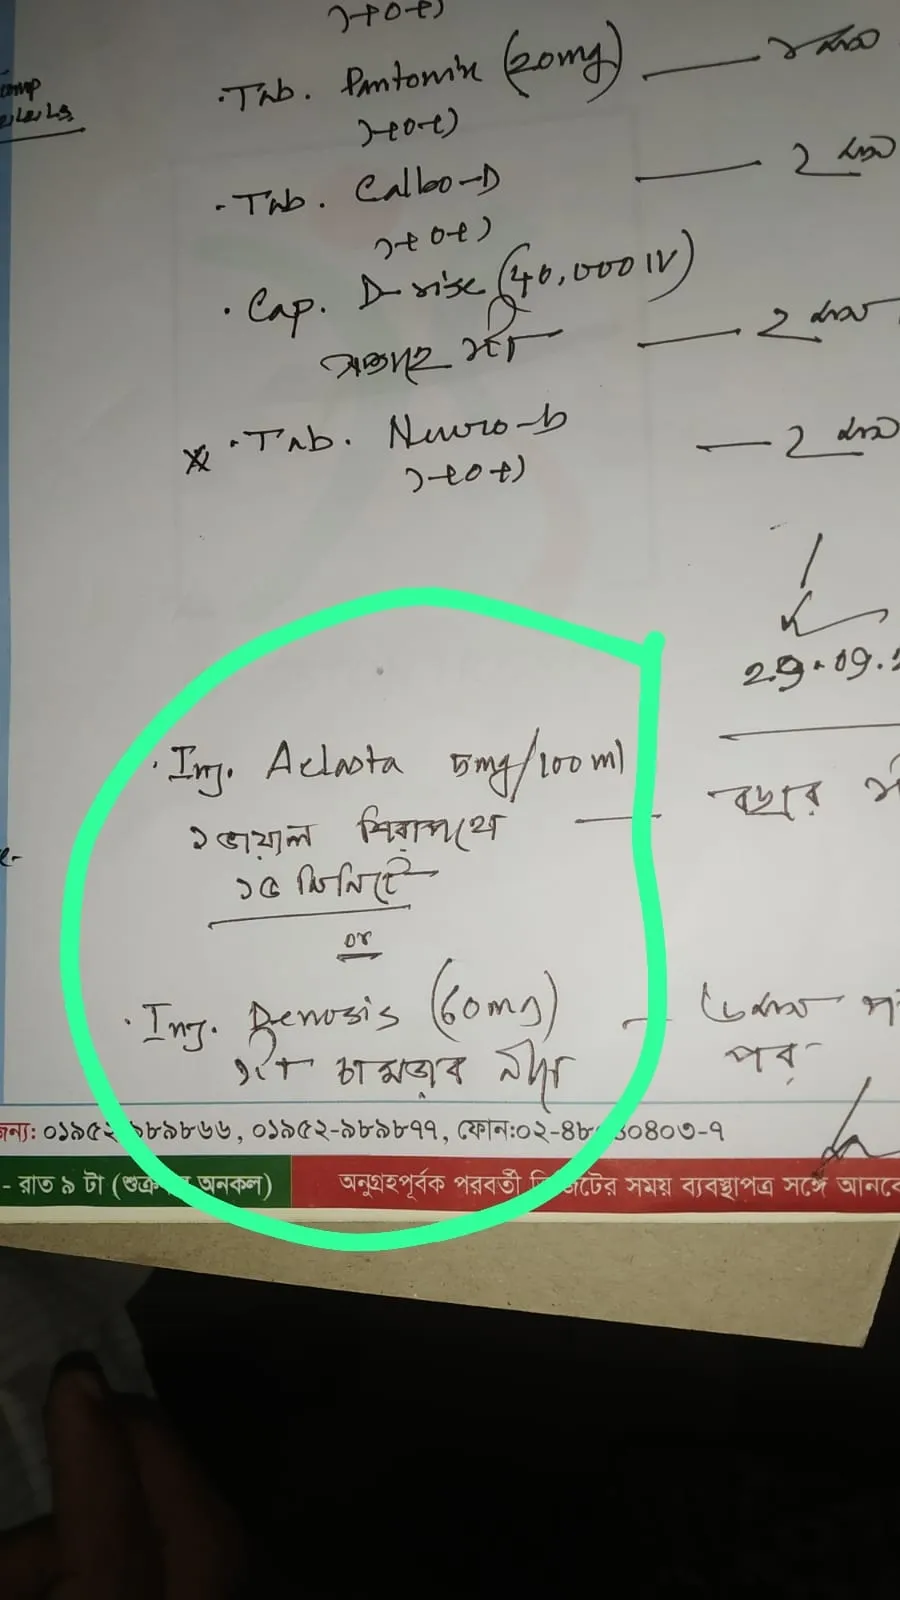 ১+০+১
comp
Tab. Pantonix (20mg) —
১+০+১
Tab. Calbo-D — 2 মাস
১+০+১
Cap. D-rise (40,000 IU)
সপ্তাহে ১টা — 2 মাস
Tab. Neuro-b — 2 মাস
১+০+১
29.09.
Inj. Aclasta 5mg/100ml
১ ভায়াল শিরাপথে — বছরে
১৫ মিনিটে
or
Inj. Denosis (60mg) — ৬ মাস
১টা চামড়ার নীচে পর
জন্য: ০১৯৫২-৯৮৯৮৬৬, ০১৯৫২-৯৮৯৮৭৭, ফোন:০২-৪৮ ০৪০৩-৭
- রাত ৯ টা (শুক্রবার অনকল) অনুগ্রহপূর্বক পরবর্তী ভিজিটের সময় ব্যবস্থাপত্র সঙ্গে আনবে